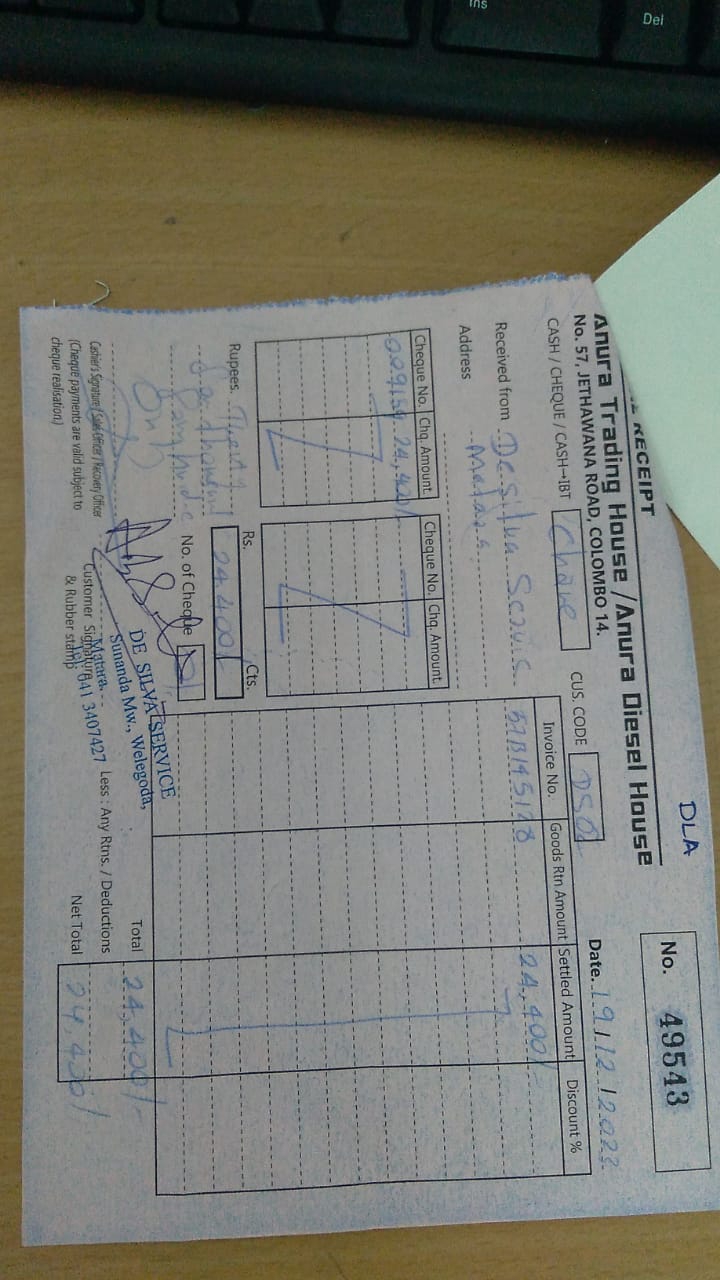 Ins
Del
DLA
RECEIPT
Anura Trading House / Anura Diesel House
No. 57, JETHAWANA ROAD, COLOMBO 14.
No. 49543
CASH / CHEQUE / CASH-IBT
CUS. CODE
Date. 19/12/2023
Received from De Silva Servis.
Address Matara.
Cheque No. Chq. Amount. Cheque No. Chq. Amount.
24,400/
Invoice No. Goods Rtn Amount Settled Amount Discount %
24,400/-
Rupees. Twenty
Rs. Cts.
24,400/
No. of Cheque 01
Only
Cashier's Signature / Sales Officer / Recovery Officer
(Cheque payments are valid subject to
cheque realisation)
Customer Signature
& Rubber stamp
DE SILVA SERVICE
Sunanda Mw., Welegoda,
Matara.
Tel 041 3407427
Total 24,400/-
Less : Any Rtns. / Deductions
Net Total 24,400/